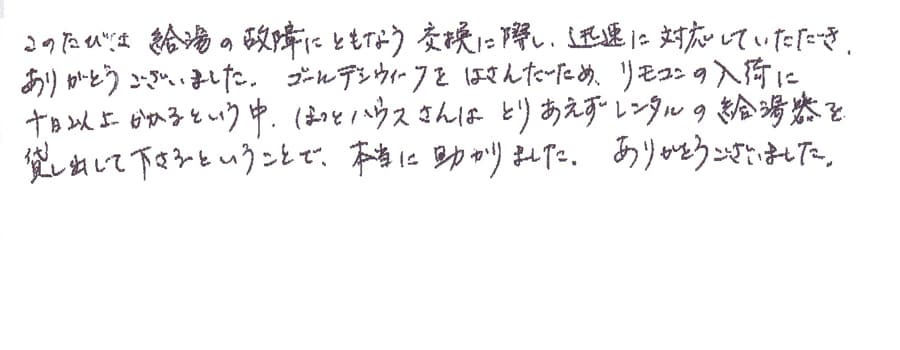 このたびは 給湯の故障にともなう 交換に際し、迅速に対応していただき、
ありがとうございました。 ゴールデンウィークを はさんだため、リモコンの入荷に
十日以上かかるという中、ほっとハウスさんは とりあえずレンタルの給湯器を
貸し出して下さるということで、本当に助かりました。 ありがとうございました。